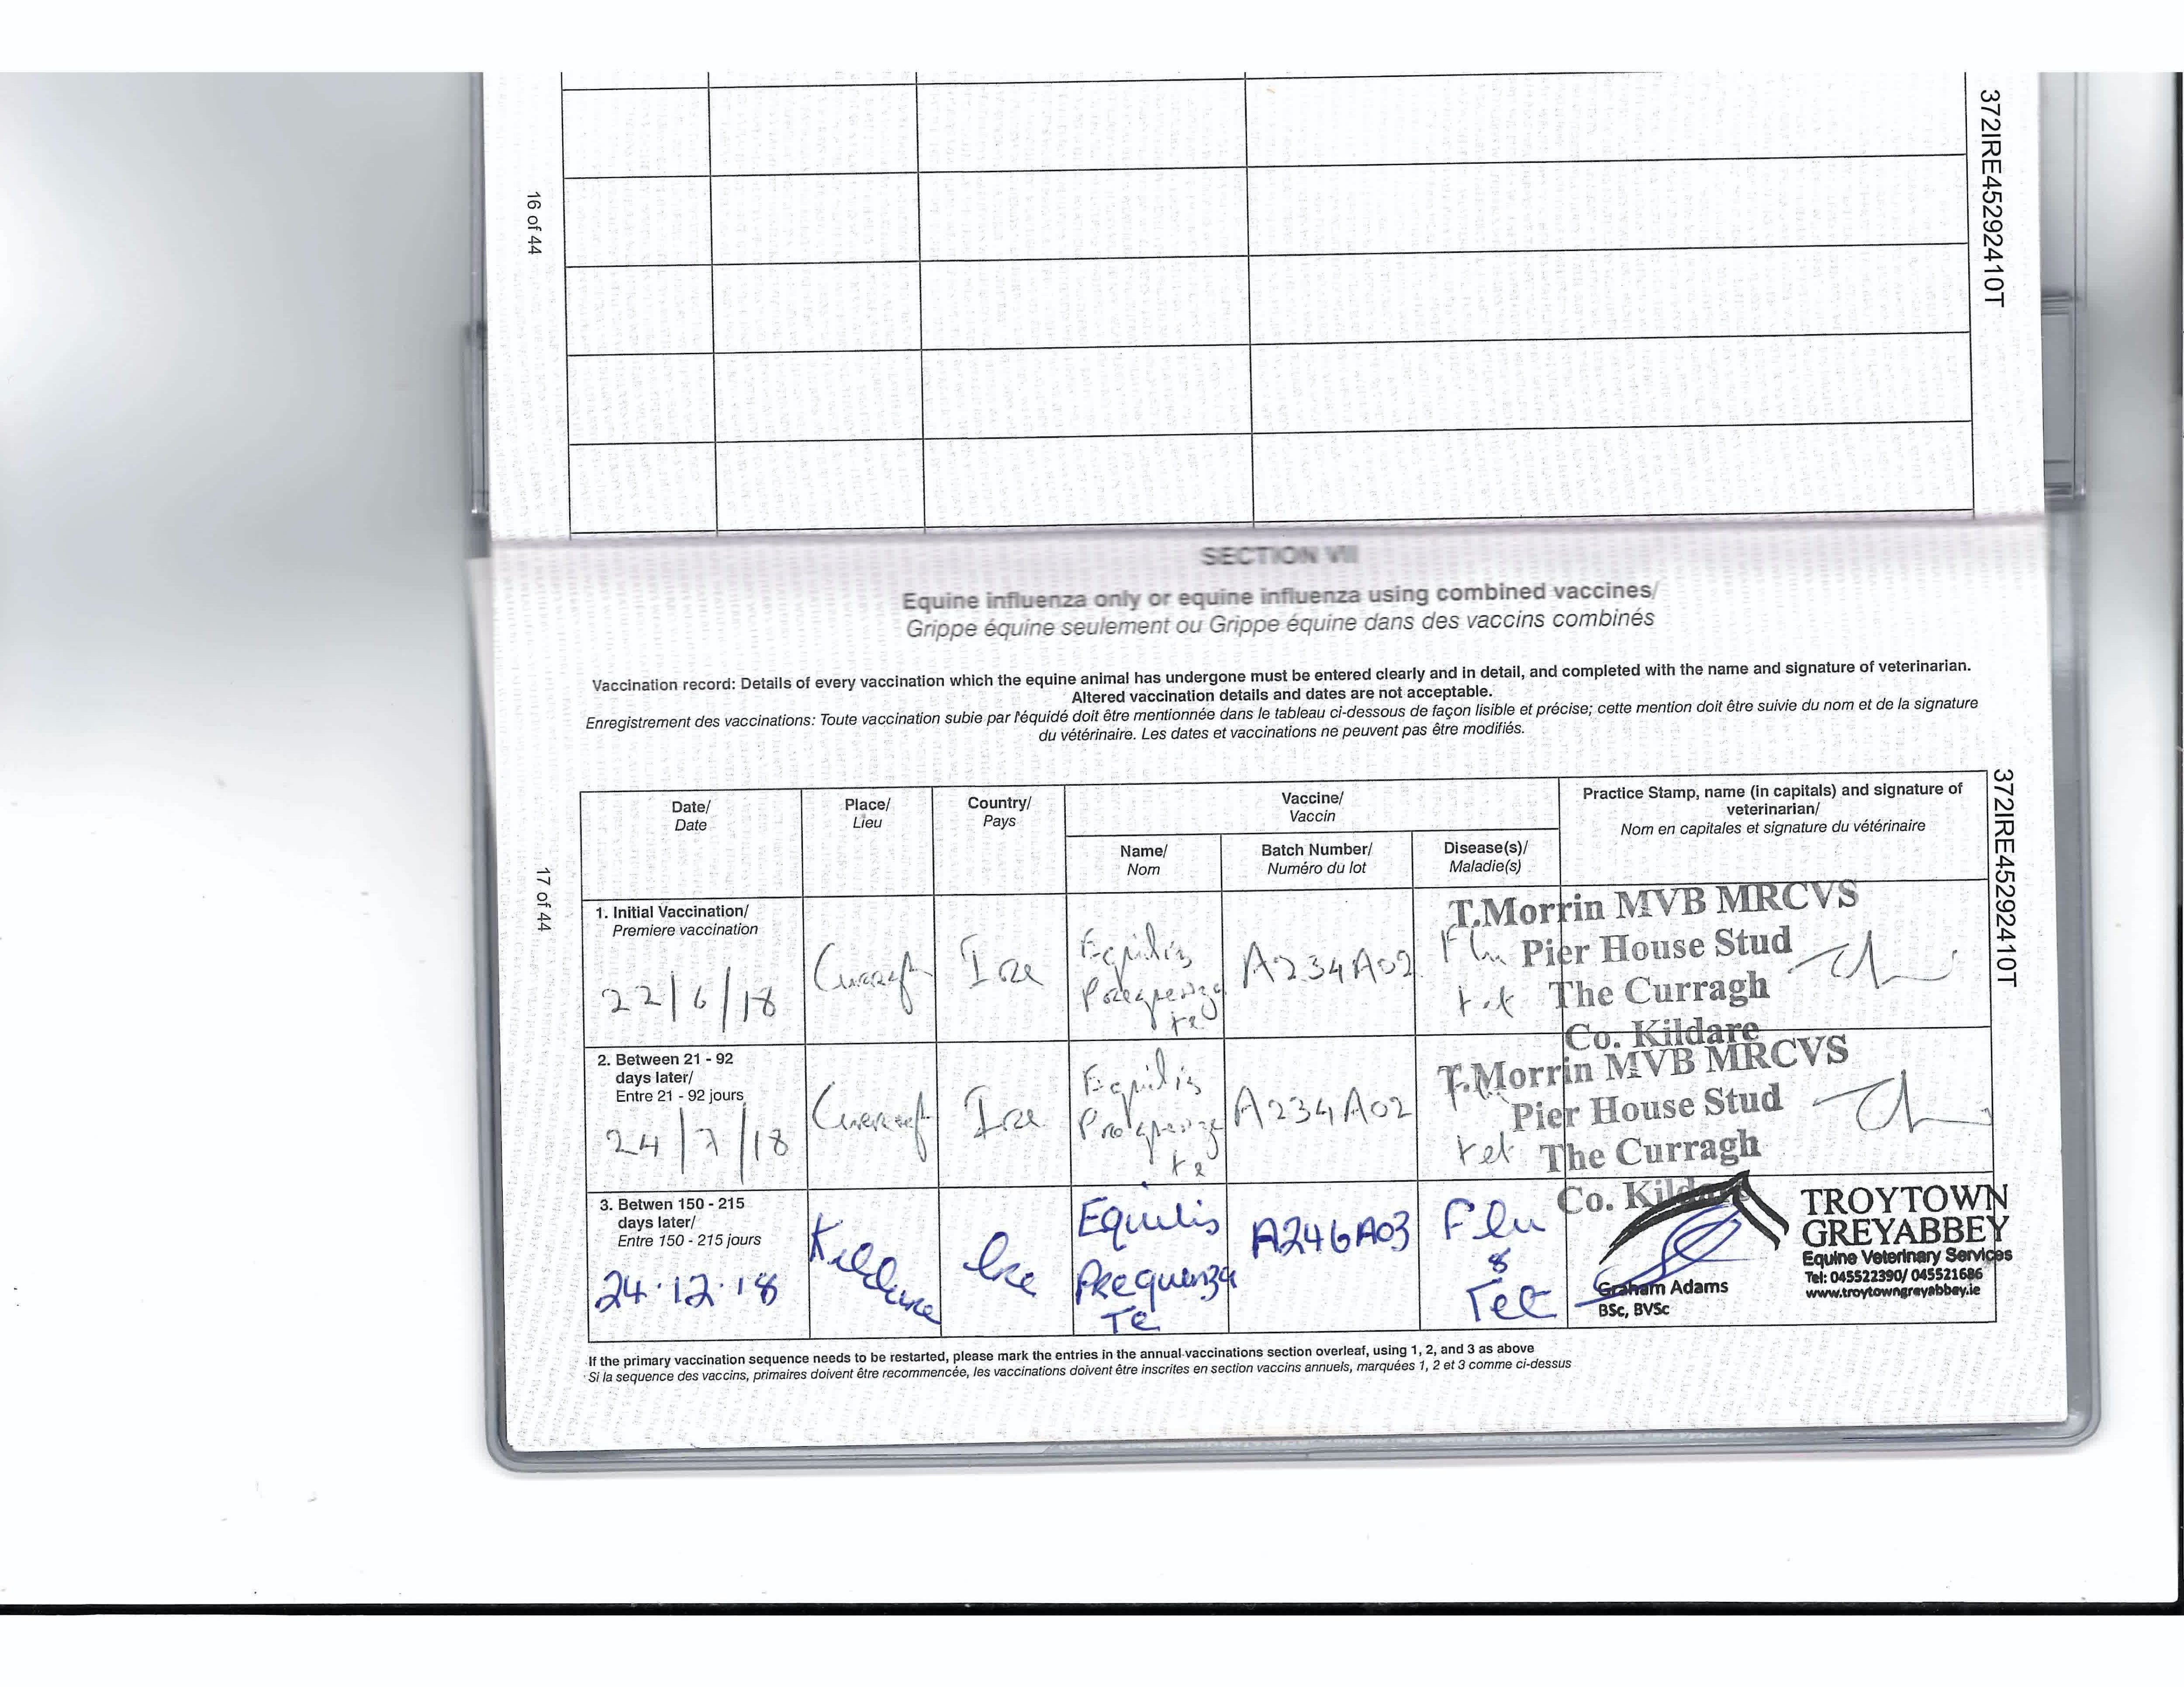 372IRE45292410T
16 of 44
SECTION VIII
Equine influenza only or equine influenza using combined vaccines/
Grippe équine seulement ou Grippe équine dans des vaccins combinés
Vaccination record: Details of every vaccination which the equine animal has undergone must be entered clearly and in detail, and completed with the name and signature of veterinarian.
Altered vaccination details and dates are not acceptable.
Enregistrement des vaccinations: Toute vaccination subie par l'équidé doit être mentionnée dans le tableau ci-dessous de façon lisible et précise; cette mention doit être suivie du nom et de la signature
du vétérinaire. Les dates et vaccinations ne peuvent pas être modifiés.
372IRE45292410T
17 of 44
Date/
Date
Place/
Lieu
Country/
Pays
Vaccine/
Vaccin
Name/
Nom
Batch Number/
Numéro du lot
Disease(s)/
Maladie(s)
Practice Stamp, name (in capitals) and signature of
veterinarian/
Nom en capitales et signature du vétérinaire
1. Initial Vaccination/
Premiere vaccination
22/6/18
Curragh
Ire
Equilis
Prequenza
te
A234A02
Flu
tet
T.Morrin MVB MRCVS
Pier House Stud
The Curragh
Co. Kildare
2. Between 21 - 92
days later/
Entre 21 - 92 jours
24/7/18
Curragh
Ire
Equilis
Prequenza
te
A234A02
tet
T.Morrin MVB MRCVS
Pier House Stud
The Curragh
Co. Kildare
3. Betwen 150 - 215
days later/
Entre 150 - 215 jours
24.12.18
Kildare
Ire
Equilis
Prequenza
Te
A246A03
Flu
&
Tet
TROYTOWN
GREYABBEY
Equine Veterinary Services
Tel: 045522390/ 045521686
www.troytowngreyabbey.ie
Graham Adams
BSc, BVSc
If the primary vaccination sequence needs to be restarted, please mark the entries in the annual vaccinations section overleaf, using 1, 2, and 3 as above
Si la sequence des vaccins, primaires doivent être recommencée, les vaccinations doivent être inscrites en section vaccins annuels, marquées 1, 2 et 3 comme ci-dessus